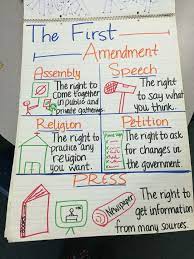 The First
Amendment
Assembly
The right to
come together
in public and
private gatherings
Speech
The right to
say what
you think.
Religion
The right to
practice any
religion
you want.
Petition
The right to ask
for changes in
the government
PRESS
Newspaper
The right to
get information
from many sources.